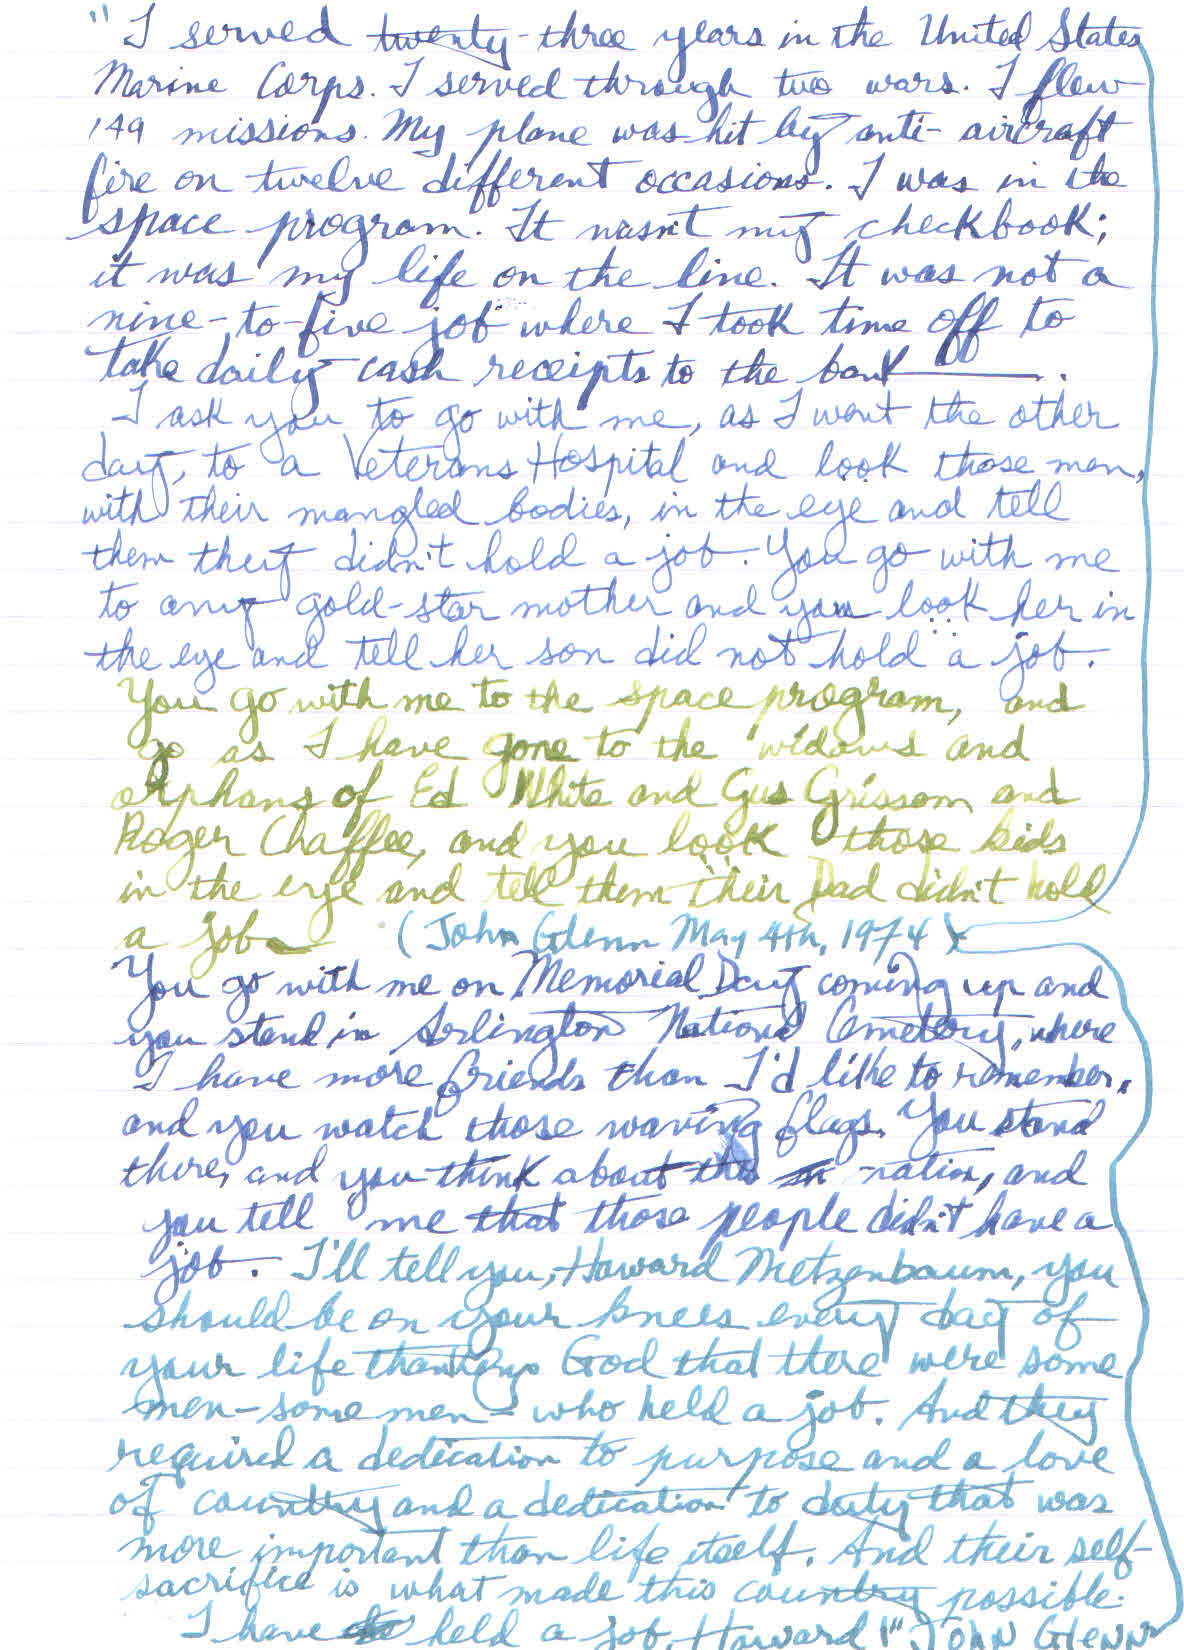 "I served twenty-three years in the United States
Marine Corps. I served through two wars. I flew
149 missions. My plane was hit by anti-aircraft
fire on twelve different occasions. I was in the
space program. It wasn't my checkbook;
it was my life on the line. It was not a
nine-to-five job where I took time off to
take daily cash receipts to the bank.
I ask you to go with me, as I went the other
day, to a Veterans Hospital and look those men,
with their mangled bodies, in the eye and tell
them they didn't hold a job. You go with me
to any gold-star mother and you look her in
the eye and tell her son did not hold a job.
You go with me to the space program, and
go as I have gone to the widows and
orphans of Ed White and Gus Grissom and
Roger Chaffee, and you look those kids
in the eye and tell them their Dad didn't hold
a job (John Glenn May 4th, 1974)
You go with me on Memorial Day coming up and
you stand in Arlington National Cemetery, where
I have more friends than I'd like to remember,
and you watch those waving flags. You stand
there, and you think about this nation, and
you tell me that those people didn't have a
job. I'll tell you, Howard Metzenbaum, you
should be on your knees every day of
your life thanking God that there were some
men-some men-who held a job. And they
required a dedication to purpose and a love
of country and a dedication to duty that was
more important than life itself. And their self-
sacrifice is what made this country possible.
I have held a job, Howard!" JOHN GLENN